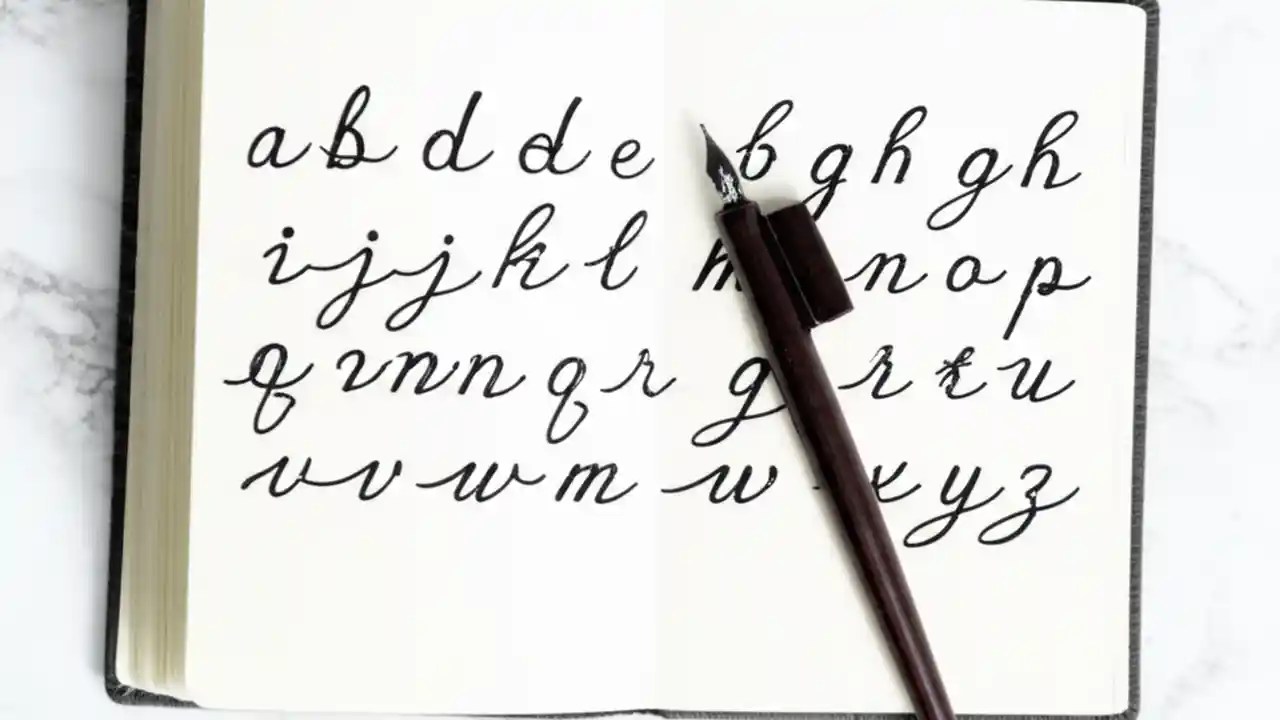 a b d d e b g h g h
i j j k l m n o p
q i n n q r g r t u
v v w m w x y z